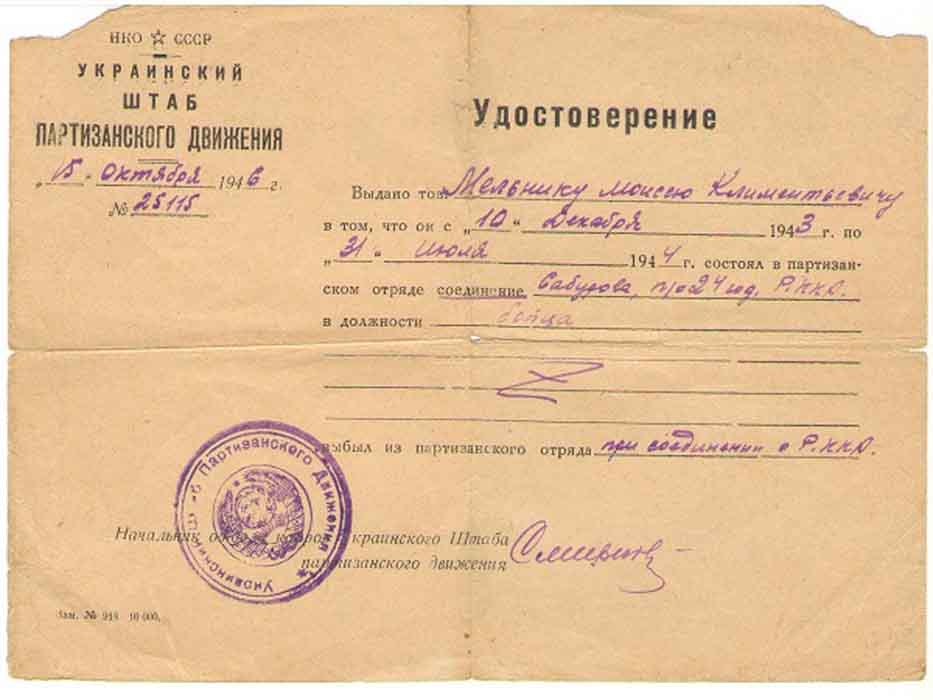 НКО ☆ СССР
УКРАИНСКИЙ
ШТАБ
ПАРТИЗАНСКОГО ДВИЖЕНИЯ
„15“ Октября 1946 г.
№ 25115
Удостоверение
Выдано тов. Мельнику Моисею Климентьевичу
в том, что он с „10“ Декабря 1943 г. по
„31“ Июля 1944 г. состоял в партизан-
ском отряде соединение Сабурова,
в должности бойца
выбыл из партизанского отряда при соединении с
Начальник отдела кадров Украинского Штаба
партизанского движения
Украинский Штаб Партизанского Движения
Зак. № 948 10 000.